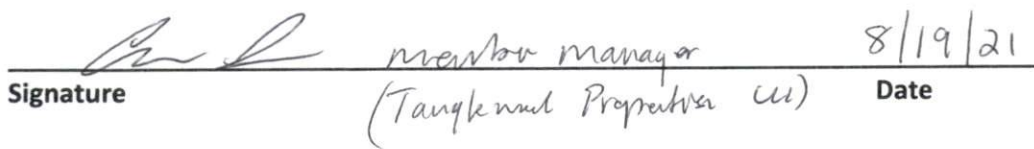 member manager 8/19/21
Signature Date
(Tanglewood Properties LLC)